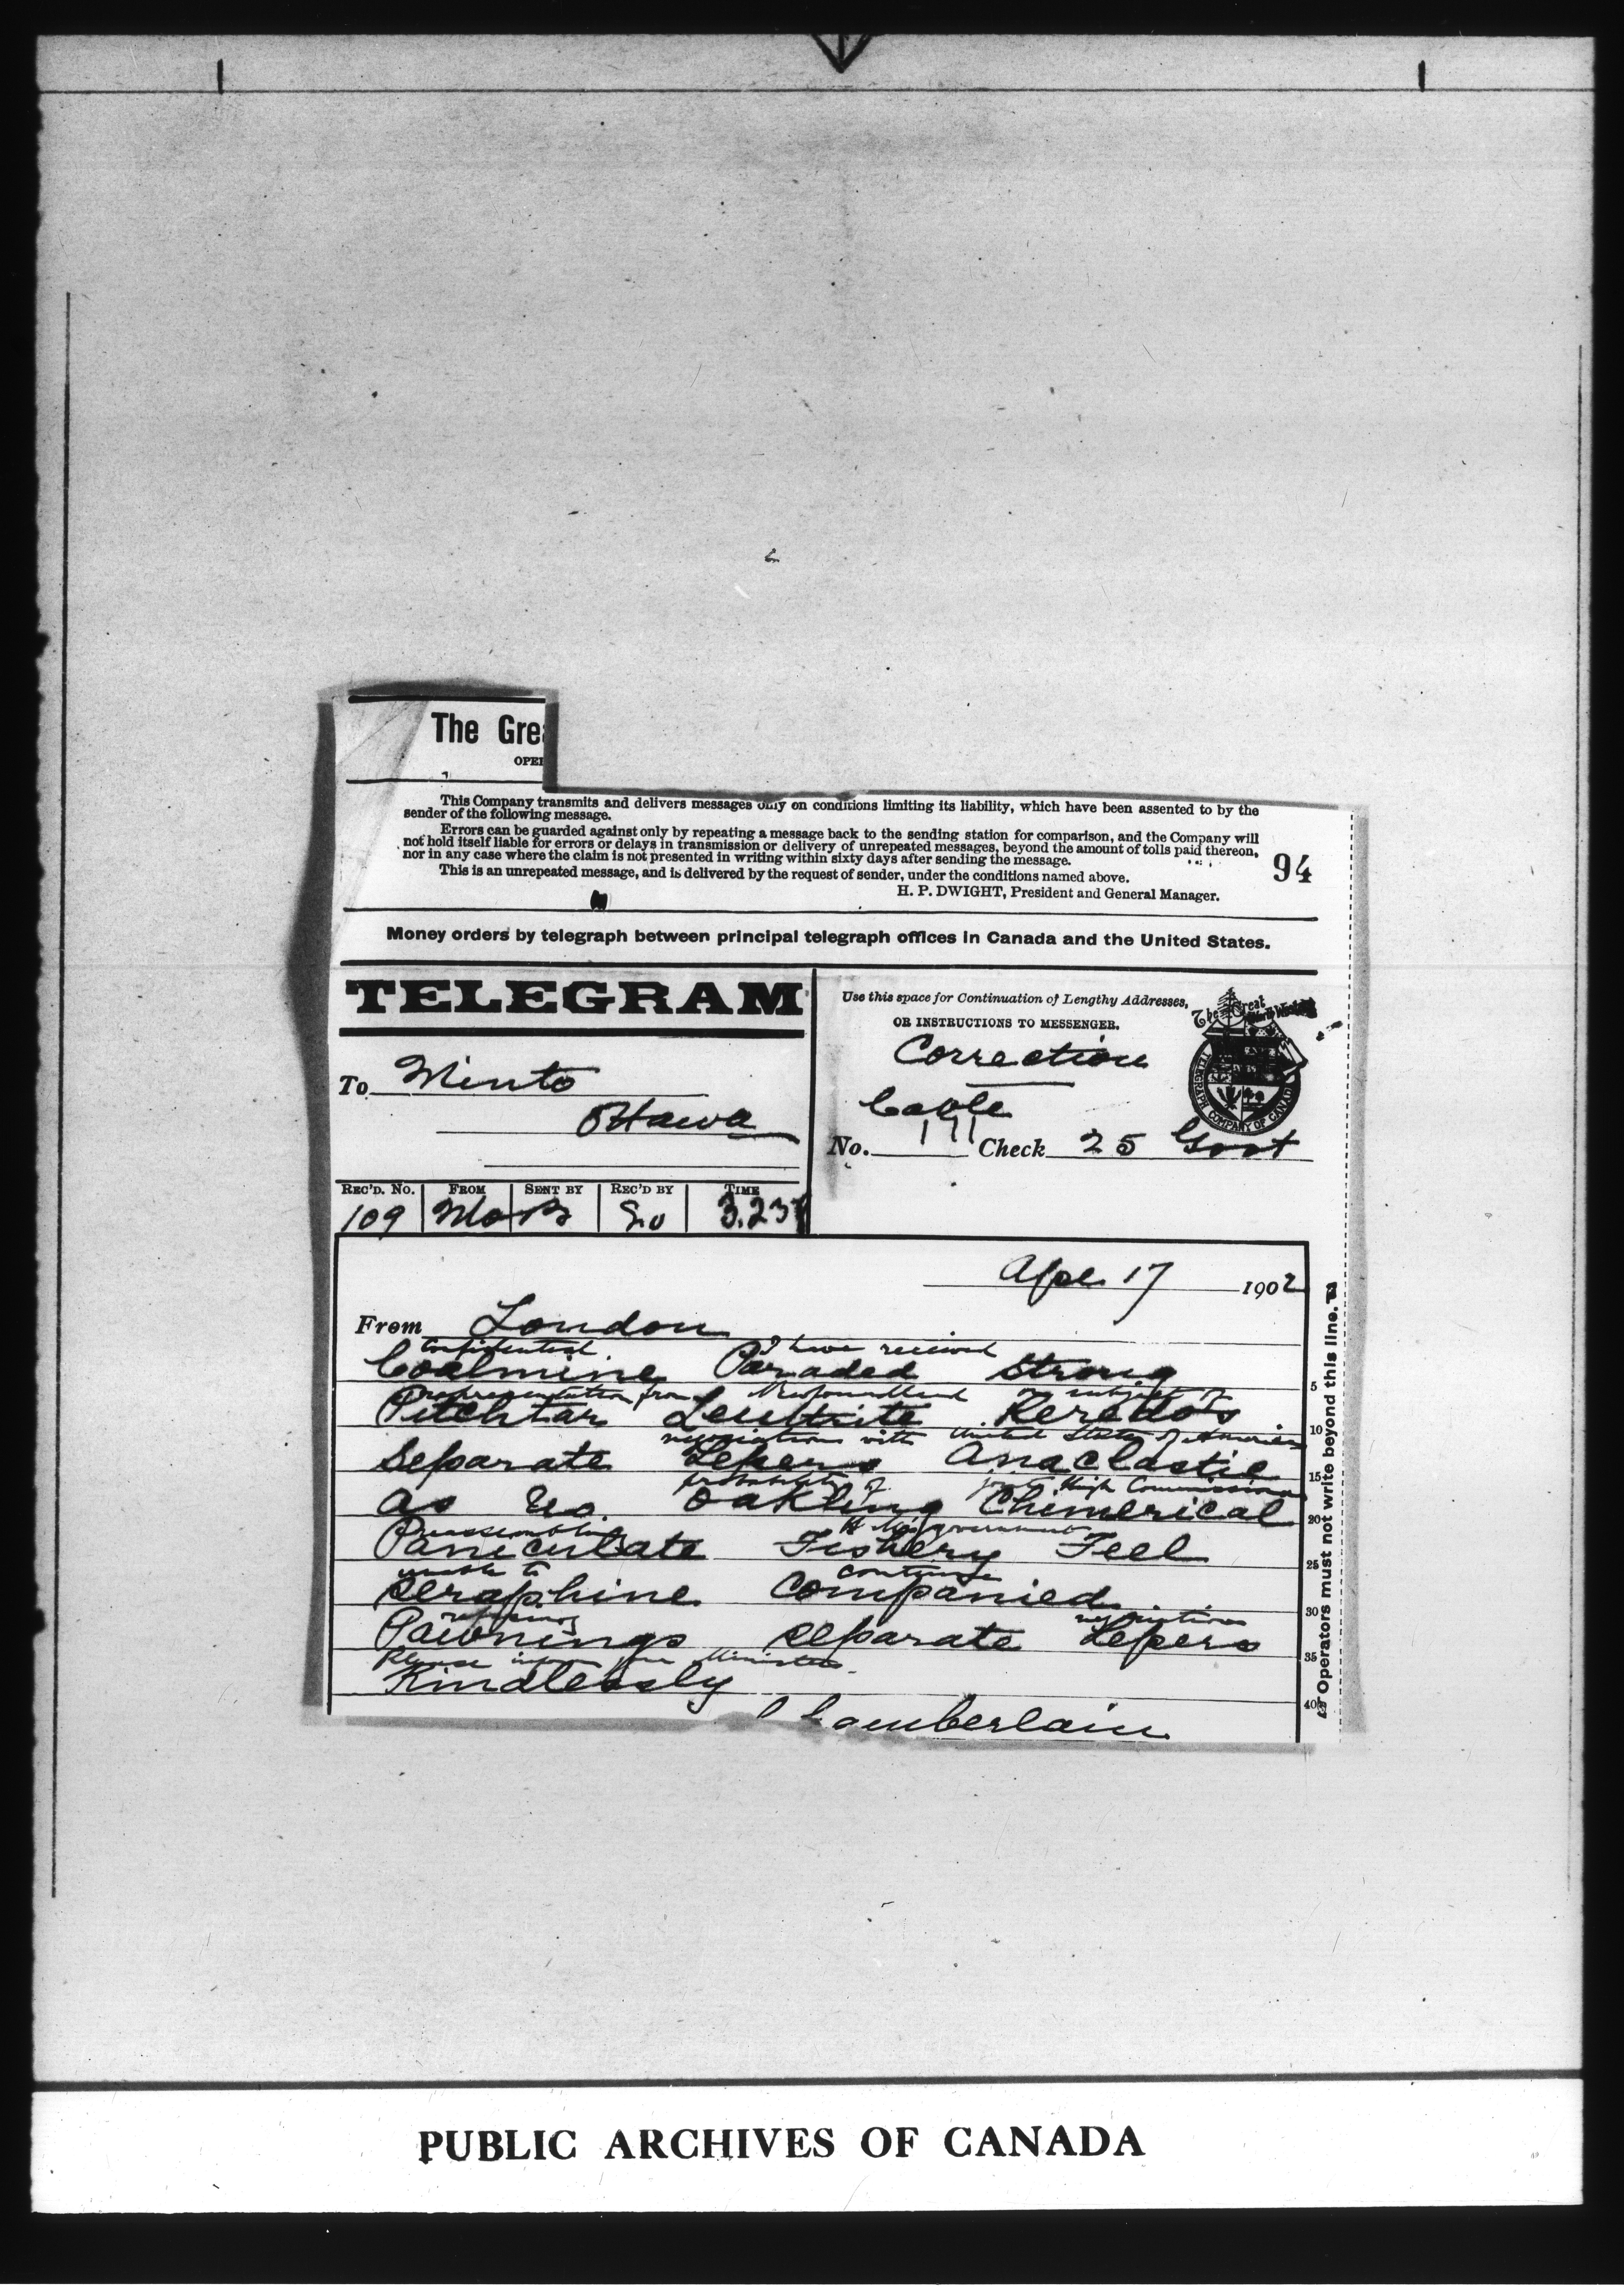 The Grea
OPE
This Company transmits and delivers messages only on conditions limiting its liability, which have been assented to by the
sender of the following message.
Errors can be guarded against only by repeating a message back to the sending station for comparison, and the Company will
not hold itself liable for errors or delays in transmission or delivery of unrepeated messages, beyond the amount of tolls paid thereon,
nor in any case where the claim is not presented in writing within sixty days after sending the message.
This is an unrepeated message, and is delivered by the request of sender, under the conditions named above.
H. P. DWIGHT, President and General Manager.
94
Money orders by telegraph between principal telegraph offices in Canada and the United States.
TELEGRAM
Use this space for Continuation of Lengthy Addresses,
OR INSTRUCTIONS TO MESSENGER.
The Great North Western
TELEGRAPH COMPANY OF CANADA
Correction
To Minto
Ottawa
Cable
No. 171 Check 25 Govt
REC'D. No. FROM SENT BY REC'D BY TIME
109 Mo B 3.23
Apl 17 1902
From London
Confidential I have received
Coalmine Paraded Strong
representation from Newfoundland subject of
Pitchtar Leuttrite Reredos
negotiations with United States of America
Separate Lepers Anaclastic
probability of joint High Commission
as no Oakling Chimerical
reassembling H M's government
Paniculate Fishery Feel
unable to continue
Seraphine Companied
refusing negotiations
Pawnings separate Lepers
Please inform your Ministers
Kindlessly
Camberlain
5
10
15
20
25
30
35
40
Operators must not write beyond this line.
PUBLIC ARCHIVES OF CANADA